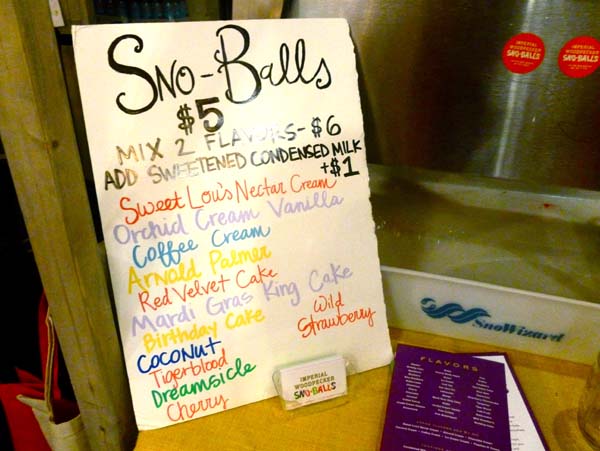 Sno-Balls
$5
MIX 2 FLAVORS- $6
ADD SWEETENED CONDENSED MILK
+$1
Sweet Lou's Nectar Cream
Orchid Cream Vanilla
Coffee Cream
Arnold Palmer
Red Velvet Cake
Mardi Gras King Cake
Birthday Cake
Wild
Strawberry
Coconut
Tigerblood
Dreamsicle
Cherry
IMPERIAL
WOODPECKER
SNO-BALLS
IMPERIAL
WOODPECKER
SNO-BALLS
IMPERIAL
WOODPECKER
SNO-BALLS
SnoWizard
FLAVORS